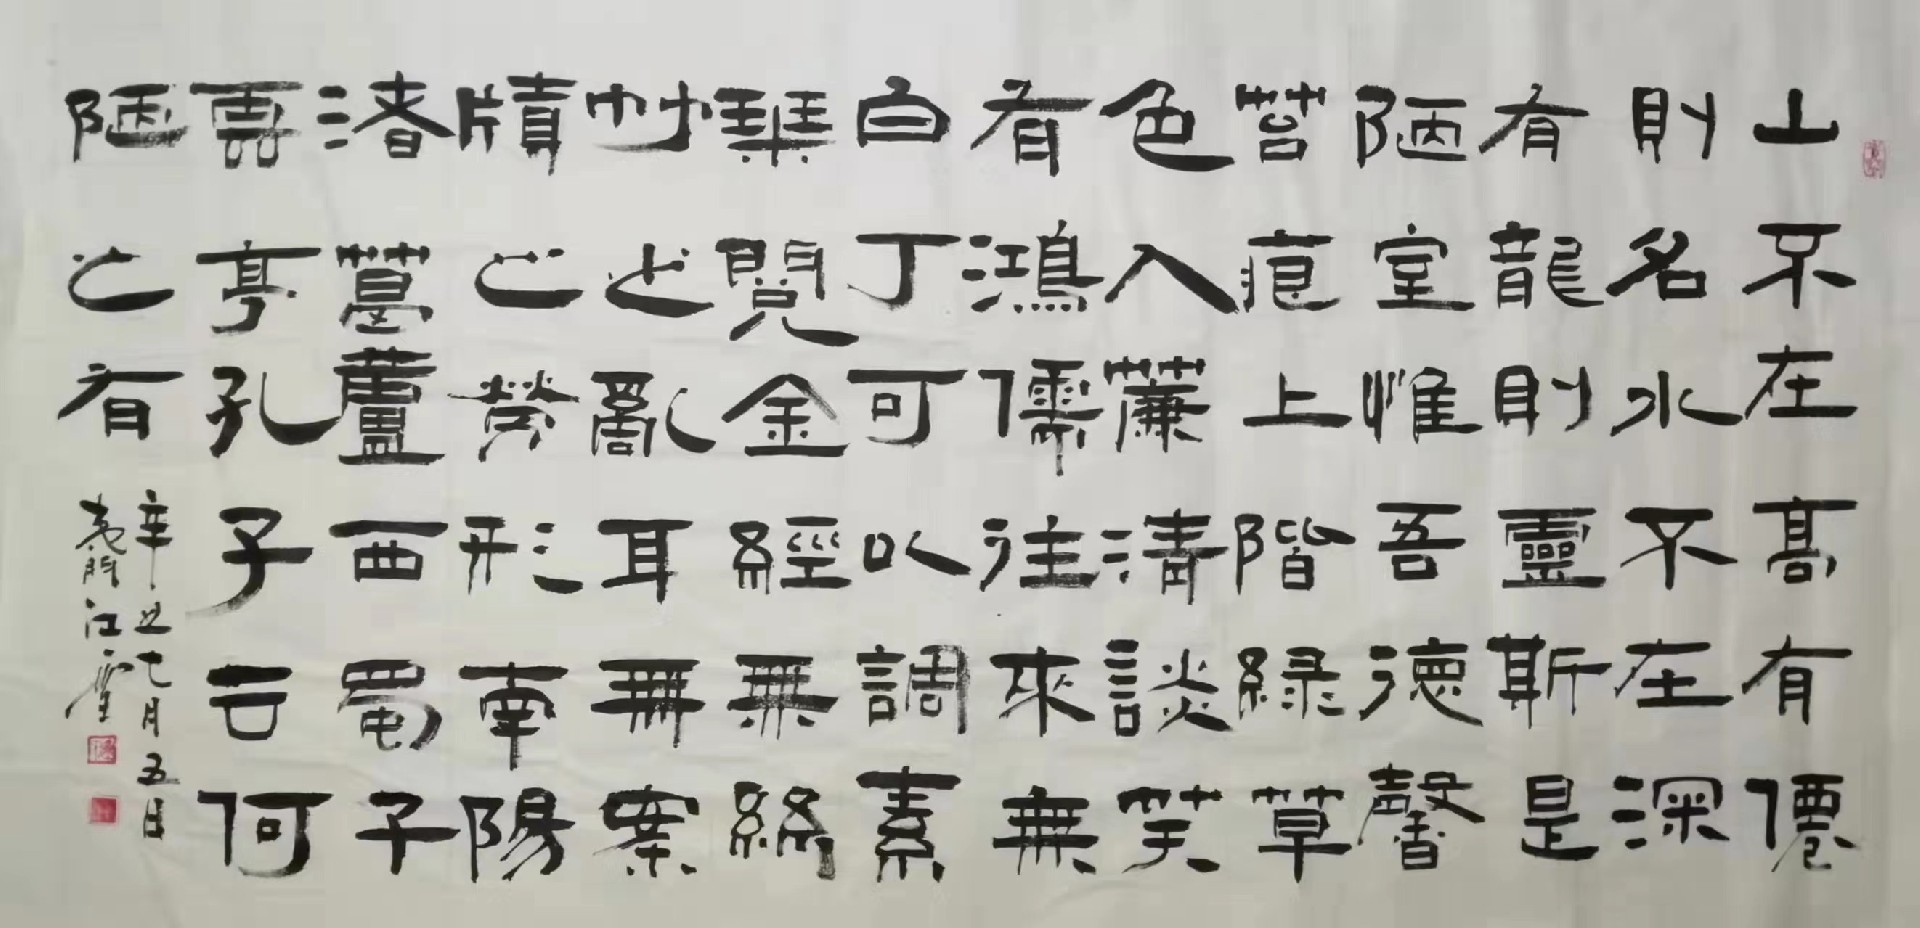 山不在高有僊
則名水不在深
有龍則靈斯是
陋室惟吾德馨
苔痕上階綠草
色入薕清談笑
有鴻儒往來無
白丁可以調素
琹閱金經無絲
竹之亂耳無案
牘之勞形南陽
渚葛蘆西蜀子
雲亭孔子云何
陋之有
辛丑七月五日
夷門江